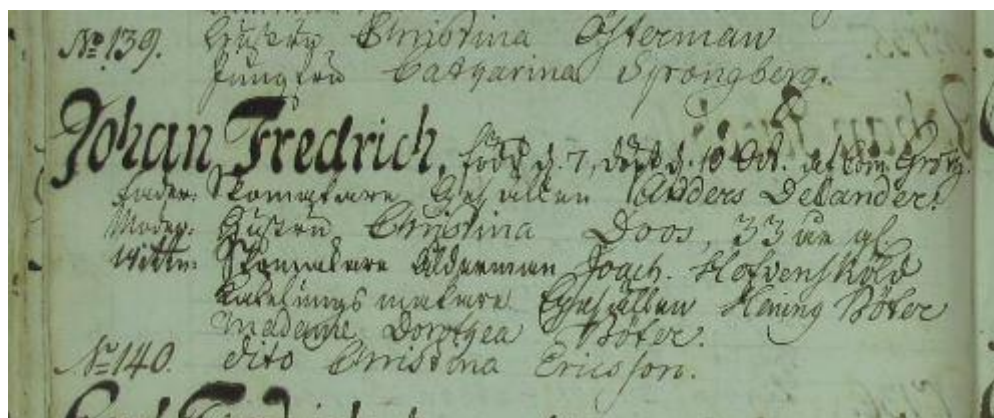 No 139. Hustru Christina Österman
Jungfru Catharina Sprongberg.
Johan Fredrich, född d. 7, döpt d. 10 Oct. af Com.
Fader: Skomakare Gesällen Anders Delander.
Moder: Hustru Christina Doos, 33 år gl.
Wittn: Skomakare Ålderman Joach. Hofvensköld
makare Gesällen Hening Böter
Madame Dorothea Böter.
No 140. dito Christina Ericsson.